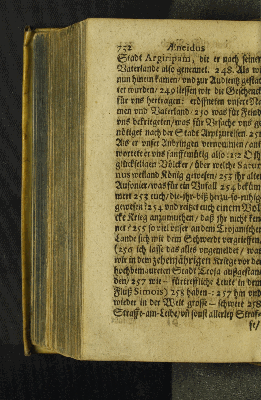 752 Æneidus
Stadt Argiripam, die er nach seinem
Vaterlande also genennet. 248. Als wir
nun hinein kamen/ und zur Audientz gestat-
tet wurden/ 249 liessen wir die Geschenck
für uns hertragen: eröffneten unsere Na-
men und Vaterland: 250 was für Feind
uns bekriegeten/ was für Ursache uns ge-
nötiget nach der Stadt Arpi zureisen. 251
Als er unser Anbringen vernommen/ ant-
wortete er uns sanfftmütig also: 252 O ihr
glückseligen Völcker/ über welche Satur-
nus weiland König gewesen/ 253 ihr alten
Ausonier/ was für ein Unfall 254 beküm-
mert 253 euch/ die ihr biß
gewesen? 254 und reitzet euch einem
Krieg anzumuthen/ daß ihr nicht ken-
net/ 255 so viel unser an dem Trojanischen
Lande sich mit dem Schwerdt vergrieffen/
(256 ich lasse das alles ungemeldet/ was
wir in dem zehenjährigen Kriege vor der
hochbemaureten Stadt Troja außgestan-
den/ 257 wie fürtreffliche Leute in dem
Fluß Simois) 258 haben: 257 hin und
wieder in der Welt grosse schwere 258
Straffe am Leibe/ uñ sonst allerley Straf-
fe/